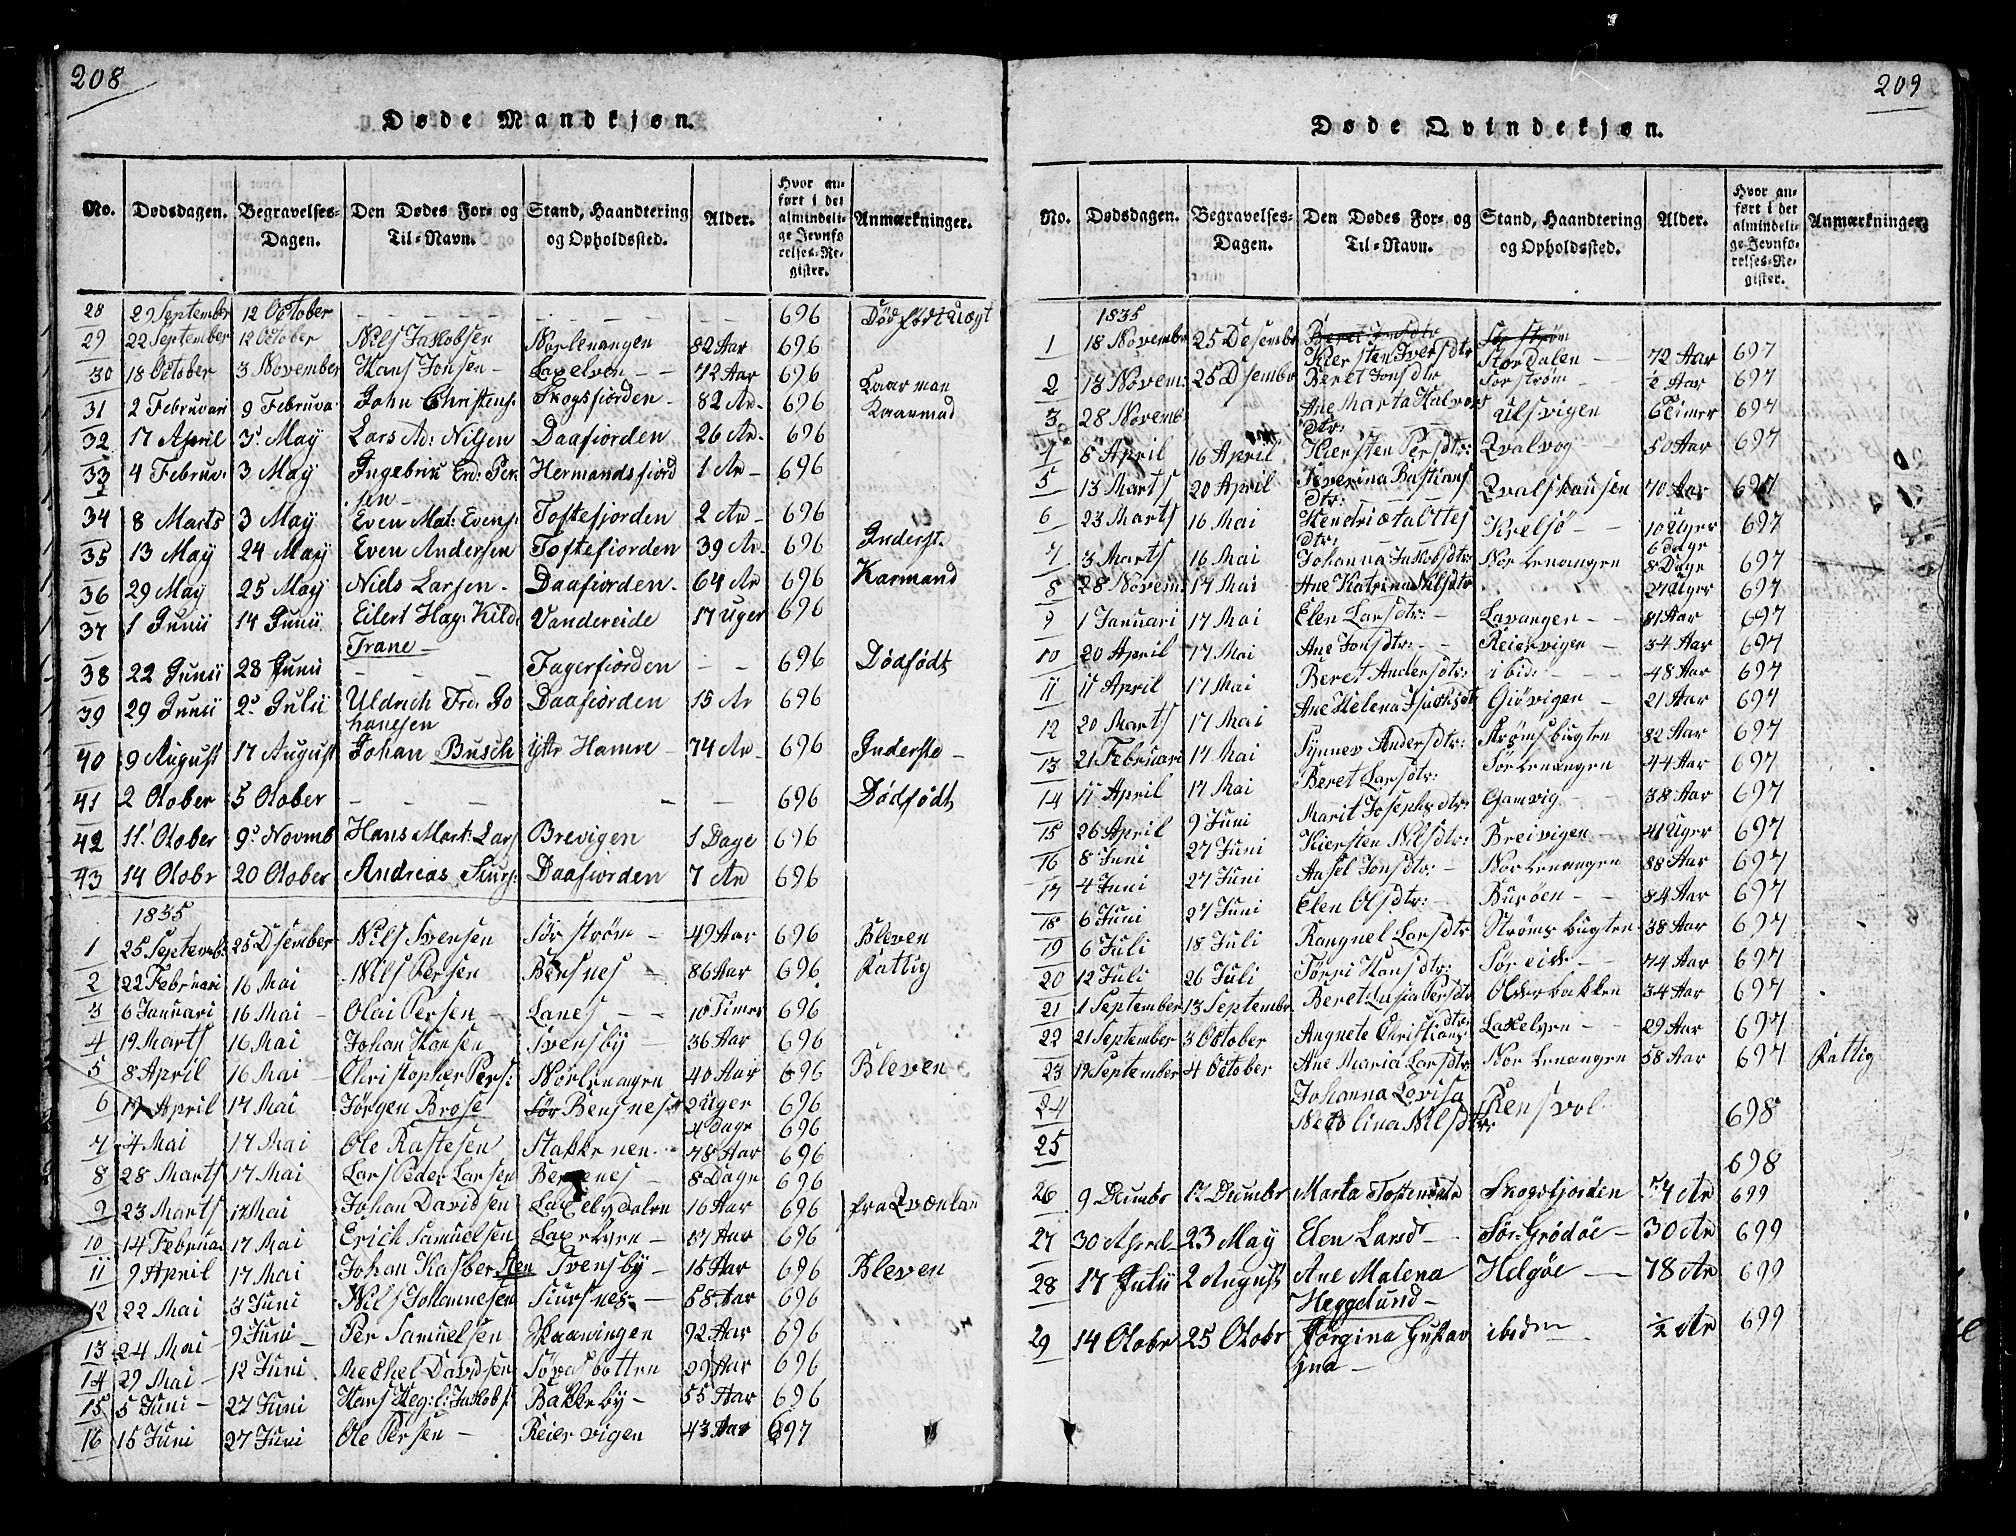 208
Døde Mandkjøn.
No. Dødsdagen. Begravelses-Dagen. Den Dødes For- og Til-Navn. Stand, Haandtering og Opholdssted. Alder. Hvor anført i det almindelige Jevnførelses-Register. Anmærkninger.
28 29 September 12 October — — — 696 Dødfødt Uægt
29 22 September 12 October Nils Jakobsen Nørlenangen 82 Aar 696
30 18 October 3 November Hans Jonsen Laxelven 72 Aar 696
31 2 Februari 9 Februa John Christens: Skogsfiorden 82 Ar 696 Kaarmand
32 17 April 3 May Lars Ad: Nilsen Daafiorden 26 Ar 696
33 4 Februa: 3 May Ingebrik Erd: Persen Hermandsfiord 1 Ar 696
34 8 Marts 3 May Even Mat: Evens: Toftefiorden 2 Ar 696
35 13 May 24 May Even Andersen Toftefiorden 39 Ar 696 Inderst
36 29 May 25 May Niels Larsen Daafiorden 64 Ar 696 Karmand
37 1 Junii 14 Junii Eilert Hag: Kild: Trane Vandereide 17 Uger 696
38 22 Junii 28 Junii — Fagerfiorden — 696 Dødfødt
39 29 Junii 2 Julii Uldrich Frd: Johanesen Daafiorden 15 Ar 696
40 9 August 17 August Johan Busch Yttr Hamre 74 Ar 696 Inderste
41 2 Otober 5 Otober — — — 696 Dødfødt
42 11 Otober 9 Novmb Hans Mart: Lars Brevigen 1 Dage 696
43 14 Otobr 20 Otober Andreas Siurs: Daafiorden 7 Ar 696
1835
1 25 Septemb: 25 Dsember Nils Svensen Sørstrøm 49 Aar 696 Bleven
2 22 Februari 16 Mai Nils Persen Bensnes 86 Aar 696 Fattig
3 6 Januari 16 Mai Olai Persen Lanes 10 Timer 696
4 19 Marts 16 Mai Johan Hansen Svensby 36 Aar 696
5 8 April 16 Mai Christopher Pers: Nørlenangen 40 Aar 696 Bleven
6 17 April 17 Mai Jørgen Brose Sør Bensnes 2 Uger 4 Dage 696
7 4 Mai 17 Mai Ole Rastesen Stakkenen 78 Aar 696
8 28 Marts 17 Mai Lars Peder Larsen Bensnes 8 Dage 696
9 23 Marts 17 Mai Johan Davidsen Laxelvdalen 16 Aar 696 fra Qvænlan
10 14 Februa: 17 Mai Erich Samuelsen Laxelven 17 Aar 696
11 9 April 17 Mai Johan Kasbersten Svensby 15 Aar 696 Bleven
12 22 Mai 3 Juni Nils Johannesen Siursnes 68 Aar 696
13 24 Mai 9 Juni Per Samuelsen Skaaningen 92 Aar 696
14 29 Mai 12 Juni Mechel Davidsen Sørdsbotten 29 Aar 696
15 5 Juni 27 Juni Hans Heg: l: Jakobs: Bakkeby 55 Aar 696
16 15 Juni 27 Juni Ole Persen Reiervigen 43 Aar 697
209
Døde Qvindekjøn.
No. Dødsdagen. Begravelses-Dagen. Den Dødes For- og Til-Navn. Stand, Haandtering og Opholdssted. Alder. Hvor anført i det almindelige Jevnførelses-Register. Anmærkninger.
1835
Beret Jonsdtr Sørstrøm
1 18 Novembr 25 Desembr Kiersten Iversdtr Stordalen 72 Aar 697
2 13 Novem: 25 Dsembr Beret Jonsdtr Sørstrøm ½ Aar 697
3 28 Novemb Ane Marta Halvors dtr: Ulsvigen 6 Timer 697
4 8 April 16 April Kiersten Persdtr: Qvalvog 50 Aar 697
5 13 Marts 20 April Severina Bastians dtr: Qvalshausen 70 Aar 697
6 23 Marts 16 Mai Hendriæta Ottes dtr: Kvelsø 10 Uger 6 dage 697
7 3 Marts 16 Mai Johanna Jakobsdtr: Nor Lenangen 8 Dage 697
8 28 Novem: 17 Mai Ane Katrina Nilsdtr 27 Uger 697
9 1 Januari 17 Mai Elen Larsdtr: Lavangen 81 Aar 697
10 20 April 17 Mai Ane Jonsdtr: Reiervigen 34 Aar 697
11 11 April 17 Mai Beret Andersdtr: ibid: 48 Aar 697
12 20 Marts 17 Mai Ane Helena Isachsdt Giøvigen 21 Aar 697
13 21 Februari 17 Mai Synnev Andersdtr: Strømsbugten 82 Aar 697
14 11 April 17 Mai Beret Larsdtr: Sør Lenangen 44 Aar 697
15 26 April 9 Juni Marit Josephsdtr: Gamvig 38 Aar 697
16 8 Juni 27 Juni Kiersten Nilsdtr: Breivigen 41 Uger 697
17 4 Juni 27 Juni Aasel Jonsdtr: Nor Lenangen 88 Aar 697
18 6 Juni 27 Juni Elen Olsdtr: Burøen 84 Aar 697
19 6 Juli 18 Juli Rangnel Larsdtr Strømsbugten 38 Aar 697
20 12 Juli 26 Juli Tørri Hansdtr: Sør eide 74 Aar 697
21 1 September 13 Septembr Beret Lusia Persdtr Olderbakken 34 Aar 697
22 21 September 3 October Angnete Christians dtr: Laxelven 29 Aar 697
23 19 September 4 October Ane Maria Larsdtr: Nor Lenangen 58 Aar 697 Fattig
24 Johanna Lovisa Nekolina Nilsdtr: Rensvol 698
25 698
26 9 Dcumbr 17 Dcumbr Marta Tostensdtr Skogsfjorden 74 Ar 699
27 30 Aprel 23 May Elen Larsdt Sør-Grødøe 30 Ar 699
28 17 Julii 2 August Ane Malena Heggelund Helgøe 78 Ar 699
29 14 Otobr 25 Otobr Jørgina Gustavina ibidm ½ Ar 699